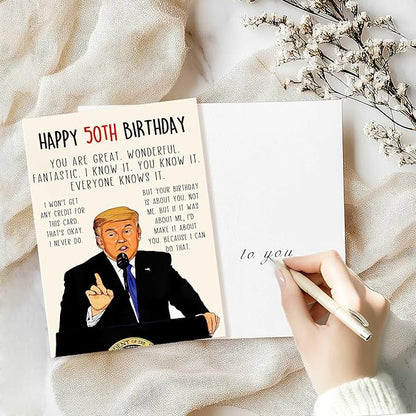 HAPPY 50TH BIRTHDAY
YOU ARE GREAT. WONDERFUL.
FANTASTIC. I KNOW IT. YOU KNOW IT.
EVERYONE KNOWS IT.
I WON'T GET
ANY CREDIT FOR
THIS CARD.
THAT'S OKAY.
I NEVER DO.
BUT YOUR BIRTHDAY
IS ABOUT YOU. NOT
ME. BUT IF IT WAS
ABOUT ME, I'D
MAKE IT ABOUT
YOU. BECAUSE I CAN
DO THAT.
to you